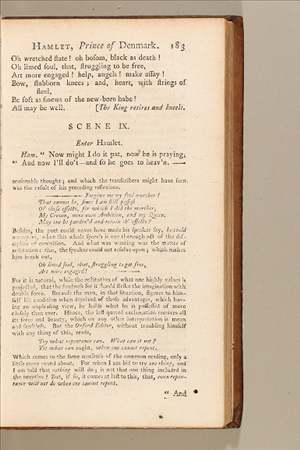 HAMLET, Prince of Denmark. 183
Oh wretched ſtate! oh boſom, black as death!
Oh limed ſoul, that, ſtruggling to be free,
Art more engaged! help, angels! make aſſay!
Bow, ſtubborn knees; and, heart, with ſtrings of
ſteel,
Be ſoft as ſinews of the new-born babe!
All may be well. [The King retires and kneels.
SCENE IX.
Enter Hamlet.
Ham. “ Now might I do it pat, now he is praying;
“ And now I'll do't—and ſo he goes to heav'n. ——
reaſonable thought; and which the tranſcribers might have ſeen
was the reſult of his preceding reflexions.
Forgive me my foul murther!
That cannot be, ſince I am ſtill poſſeſt
Of thoſe effects, for which I did the murther,
My Crown, mine own Ambition, and my Queen.
May one be pardon'd and retain th' offence?
Beſides, the poet could never have made his ſpeaker ſay, he could
not repent, when this whole ſpeech is one thorough act of the diſ-
cipline of contrition. And what was wanting was the matter of
reſtitution: this, the ſpeaker could not reſolve upon; which makes
him break out,
Oh limed ſoul, that, ſtruggling to get free,
Art more engaged!
For it is natural, while the reſtitution of what one highly values is
projected, that the fondneſs for it ſhould ſtrike the imagination with
double force. Becauſe the man, in that ſituation, figures to him-
ſelf his condition when deprived of thoſe advantages, which hav-
ing an unpleaſing view, he holds what he is poſſeſſed of more
cloſely than ever. Hence, the laſt quoted exclamation receives all
its force and beauty, which on any other interpretation is mean
and ſenſeleſs. But the Oxford Editor, without troubling himſelf
with any thing of this, reads,
Try what repentance can. What can it not?
Yet what can ought, when one cannot repent.
Which comes to the ſame nonſenſe of the common reading, only a
little more round about. For when I am bid to try one thing, and
I am told that nothing will do; is not that one thing included in
the negative? But, if ſo, it comes at laſt to this, that, even repen-
tance will not do when one cannot repent.
“ And